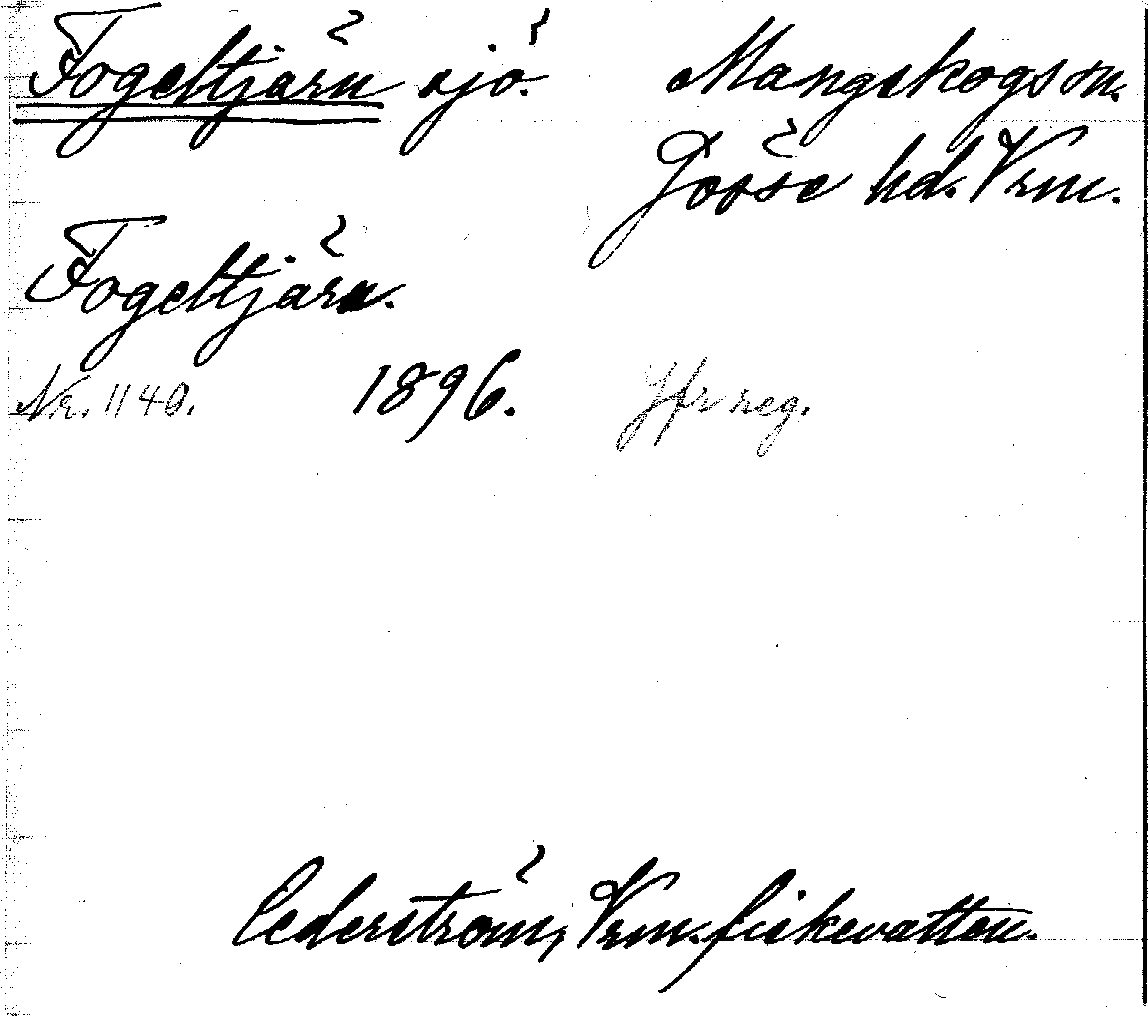 Fogeltjärn sjö. Mangskogs sn.
Jösse hd. Vrm.
Fogeltjärn.
Nr. 1140. 1896. Jfr reg.
Cederström, Vrm. fiskevatten.